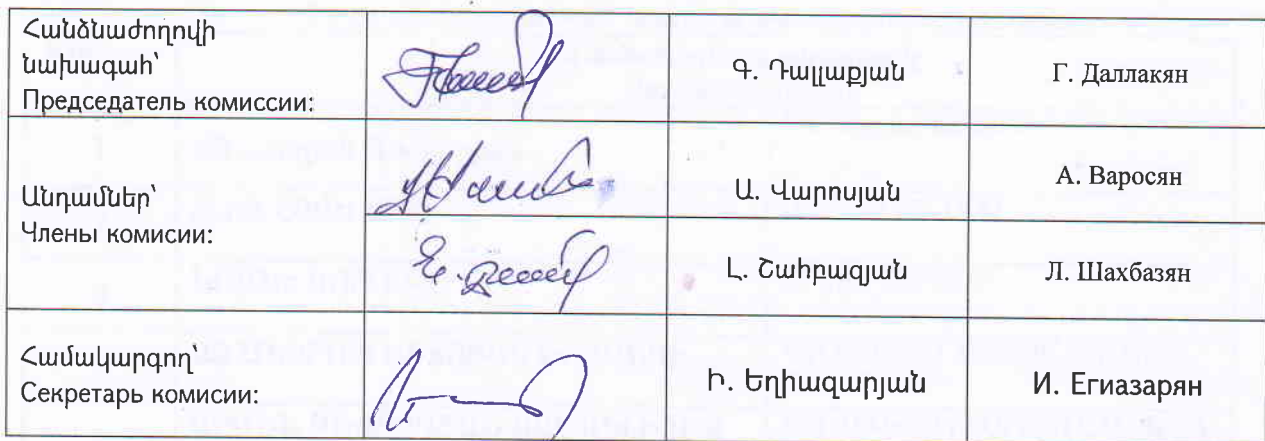 Հանձնաժողովի
նախագահ՝
Председатель комиссии:
Գ. Դալլաքյան
Г. Даллакян
Անդամներ՝
Члены комисии:
Ա. Վարոսյան
А. Варосян
Լ. Շահբազյան
Л. Шахбазян
Համակարգող՝
Секретарь комисии:
Ի. Եղիազարյան
И. Егиазарян